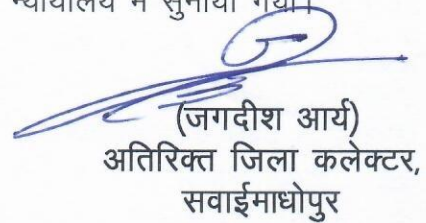 न्यायालय में सुनाया गया।
(जगदीश आर्य)
अतिरिक्त जिला कलेक्टर,
सवाईमाधोपुर